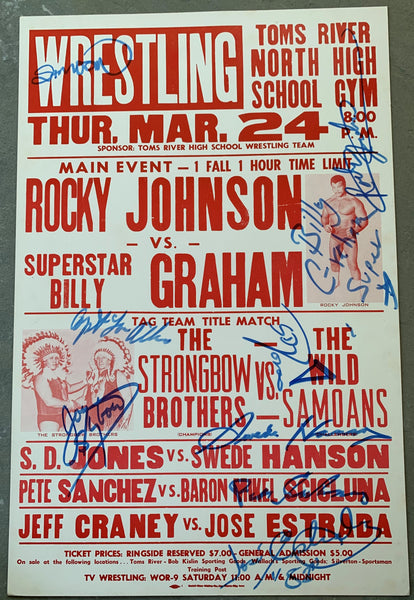 WRESTLING
TOMS RIVER
NORTH HIGH
SCHOOL GYM
THUR, MAR. 24 8:00 P. M.
SPONSOR: TOMS RIVER HIGH SCHOOL WRESTLING TEAM
MAIN EVENT – 1 FALL 1 HOUR TIME LIMIT
ROCKY JOHNSON
– VS. –
SUPERSTAR
BILLY GRAHAM
ROCKY JOHNSON
Billy
Graham
Super
TAG TEAM TITLE MATCH
THE STRONGBOW BROTHERS VS. THE WILD SAMOANS
THE STRONGBOW BROTHERS
(CHAMPIONS)
Jay
Swede Hanson
S. D. JONES VS. SWEDE HANSON
PETE SANCHEZ VS. BARON MIKEL SCICLUNA
JEFF CRANEY VS. JOSE ESTRADA
TICKET PRICES: RINGSIDE RESERVED $7.00 – GENERAL ADMISSION $5.00
On sale at the following locations... Toms River - Bob Kislin Sporting Goods, Wallach's Sporting Goods. Silverton - Sportsman
Training Post
TV WRESTLING: WOR-9 SATURDAY 11:00 A.M. & MIDNIGHT